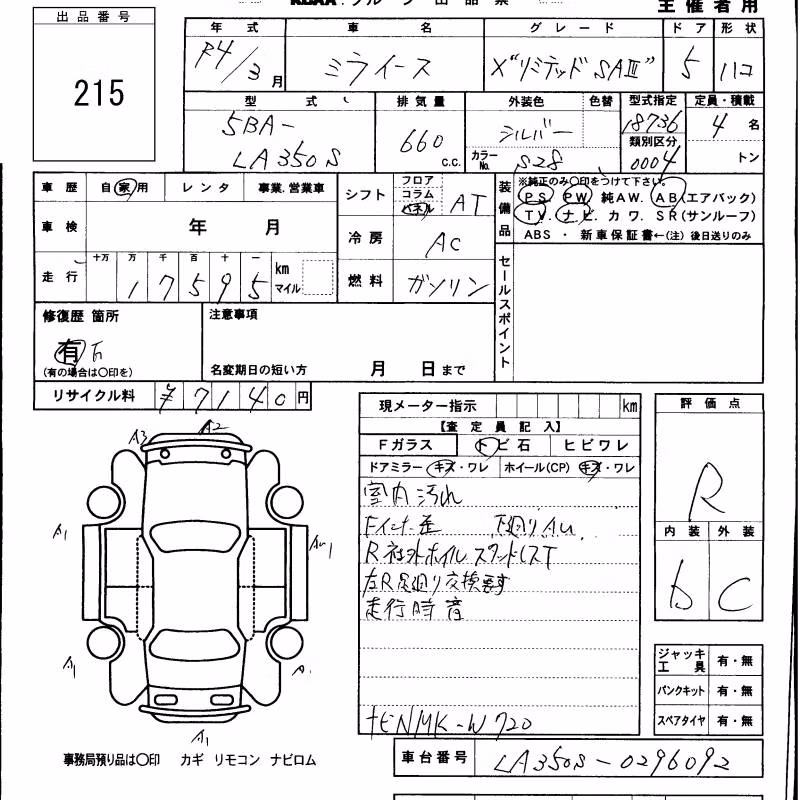 出品番号
215
主催者用
年式 車名 グレード ドア 形状
R4/3月 ミライース X"リミテッドSAⅢ" 5 ハコ
型式 排気量 外装色 色替 型式指定 定員・積載
5BA-LA350S 660 c.c. シルバー 18736 4名
カラーNo. S28 類別区分 0004 トン
車歴 自家用 レンタ 事業.営業車
車検 年 月
走行 十万 万 千 百 十 一
17595 km マイル
シフト フロア コラム パネル AT
冷房 AC
燃料 ガソリン
装備品 ※純正のみ○印をつけて下さい。
PS PW 純AW. AB(エアバック)
TV. ナビ. カワ. SR(サンルーフ)
ABS ・ 新車保証書←(注) 後日送りのみ
セールスポイント
修復歴 箇所
有 否
(有の場合は○印を)
注意事項
名変期日の短い方 月 日まで
リサイクル料 ¥7140円
現メーター指示 km
【査定員記入】
Fガラス トビ石 ヒビワレ
ドアミラー キズ・ワレ ホイール(CP) キズ・ワレ
室内汚れ
下廻りAu
R社外ホイル
左R足廻り交換要す
走行時音
TENMK-W720
評価点
R
内装 外装
b C
ジャッキ工具 有・無
パンクキット 有・無
スペアタイヤ 有・無
A3 A2
A1 Au1
A1 A
A1
事務局預り品は○印 カギ リモコン ナビロム
車台番号 LA350S-0296092